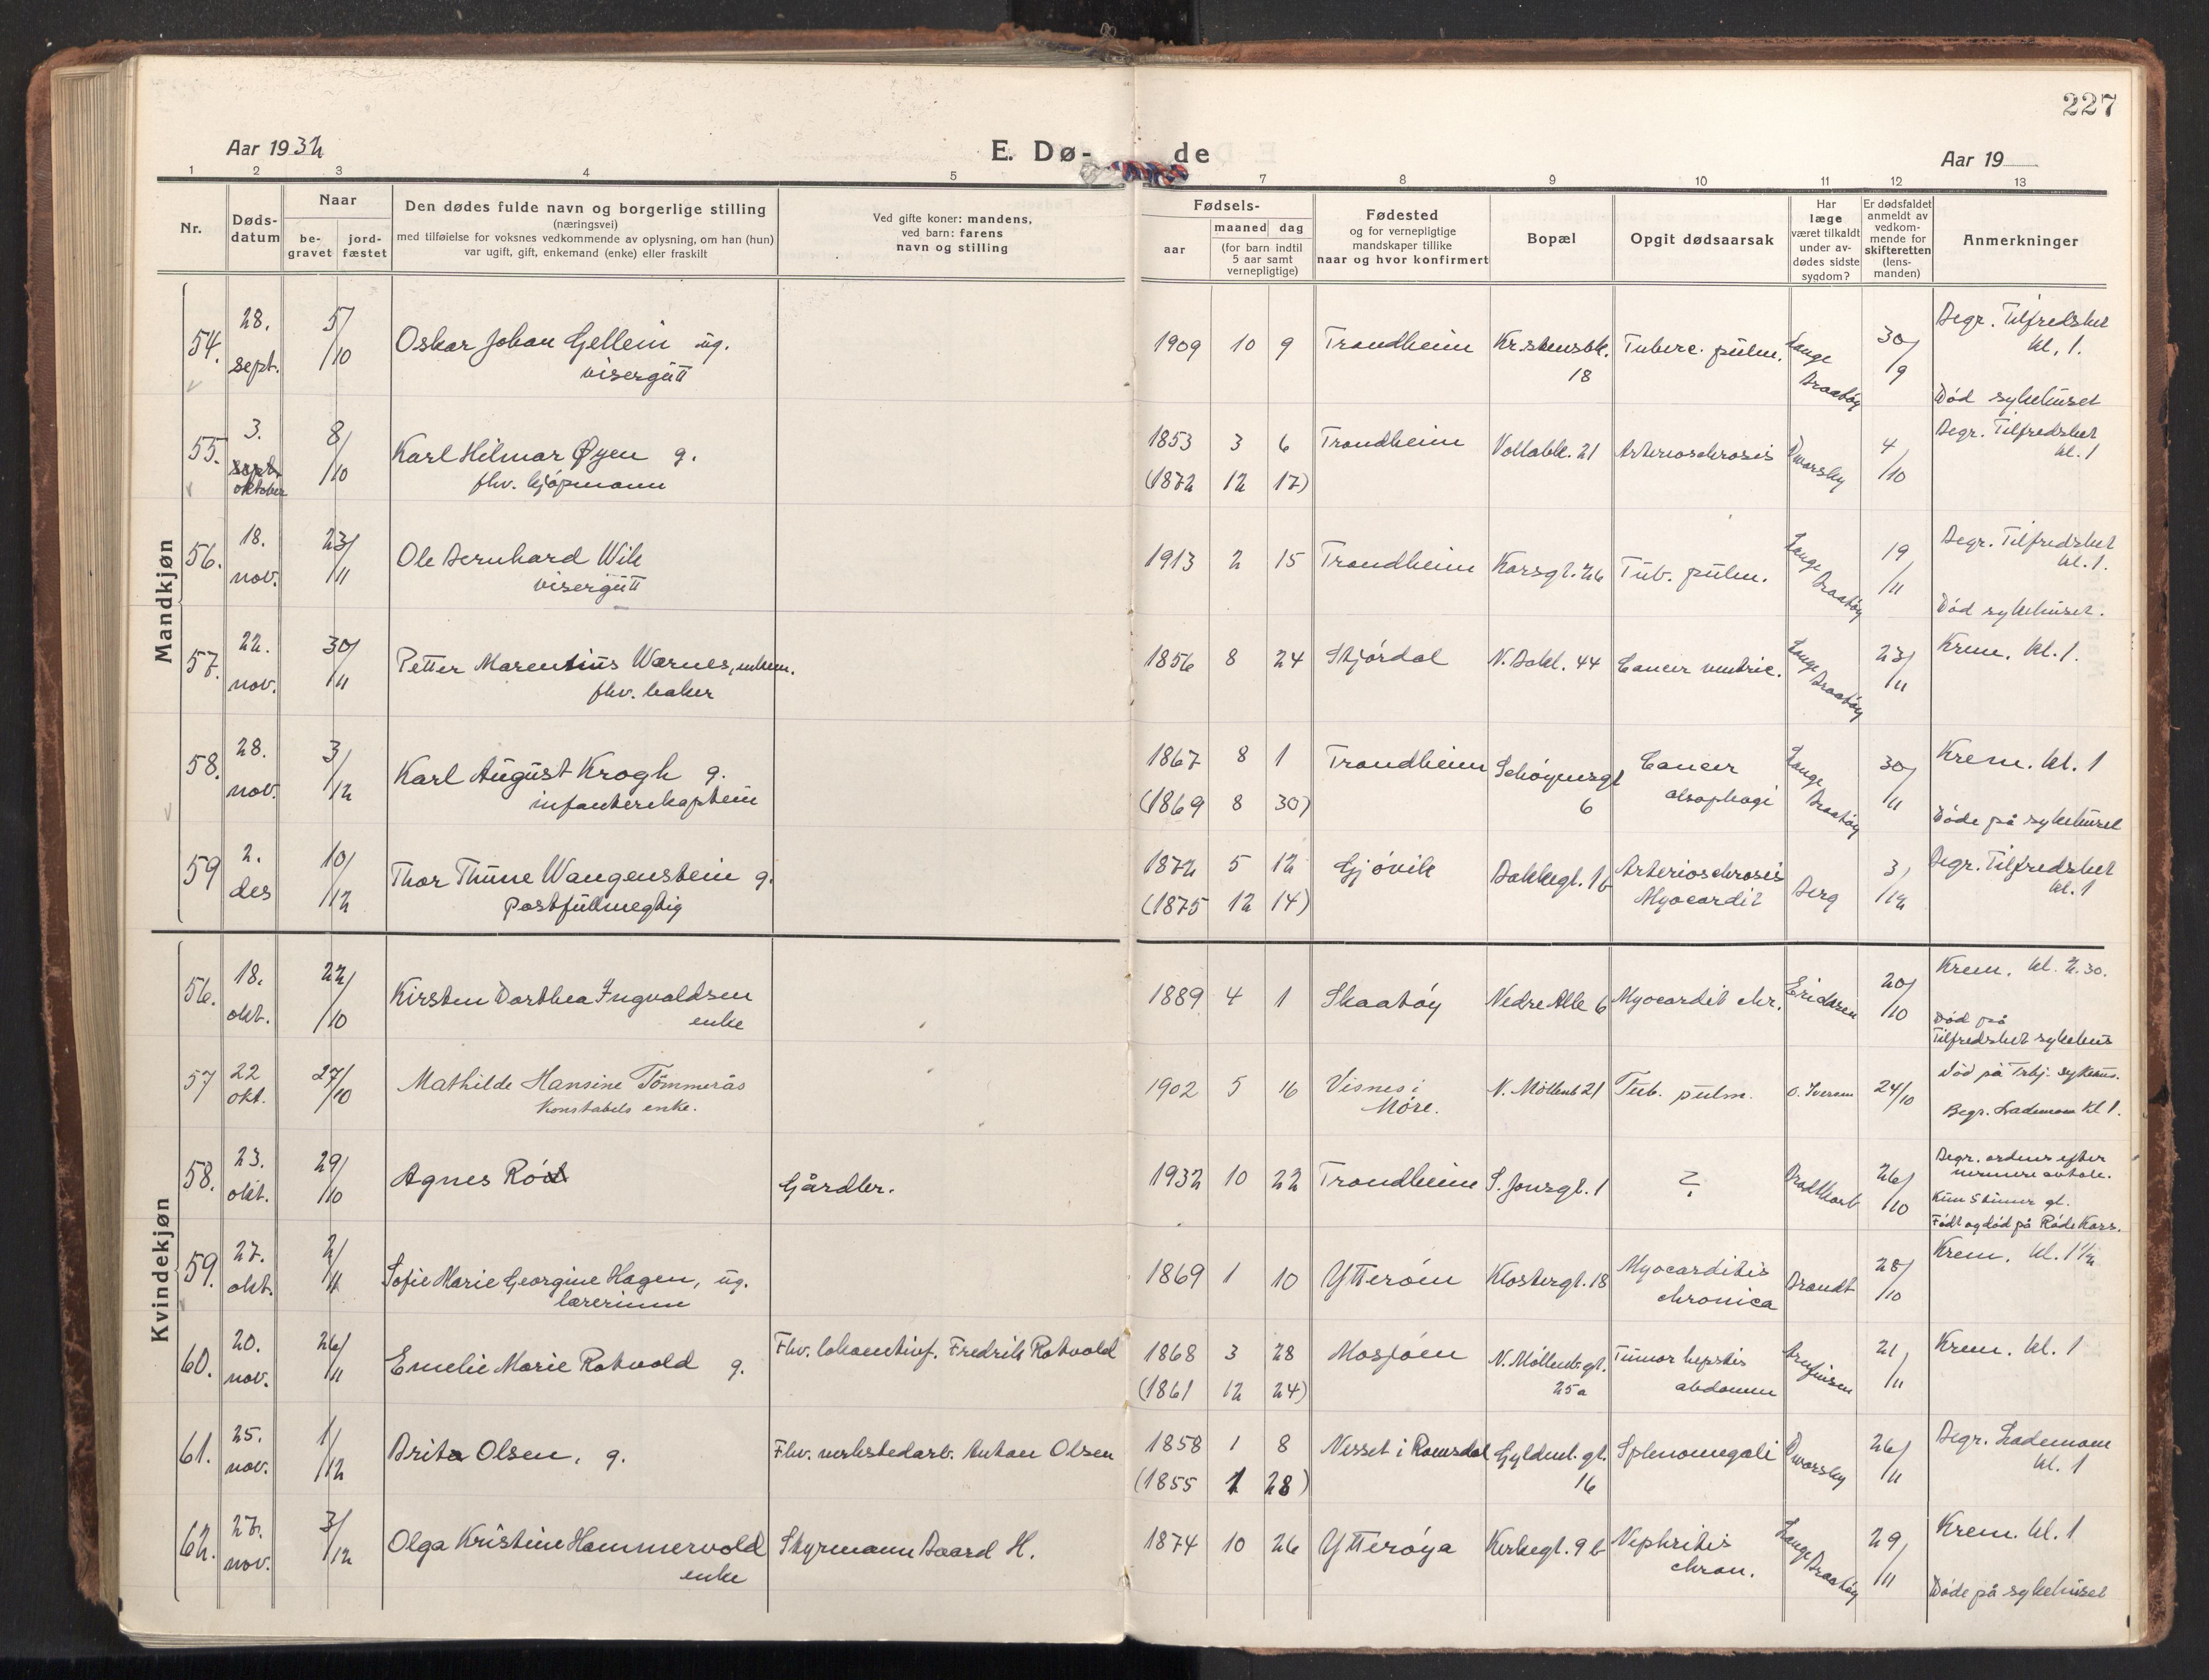 227
Aar 1932
E. Dø-
de
Aar 19
1 2 3 4 5 7 8 9 10 11 12 13
Nr.
Døds-
datum
Naar
be-
gravet
jord-
fæstet
Den dødes fulde navn og borgerlige stilling
(næringsvei)
med tilføielse for voksnes vedkommende av oplysning, om han (hun)
var ugift, gift, enkemand (enke) eller fraskilt
Ved gifte koner: mandens,
ved barn: farens
navn og stilling
Fødsels-
aar
maaned dag
(for barn indtil
5 aar samt
vernepligtige)
Fødested
og for vernepligtige
mandskaper tillike
naar og hvor konfirmert
Bopæl
Opgit dødsaarsak
Har
læge
været tilkaldt
under av-
dødes sidste
sygdom?
Er dødsfaldet
anmeldt av
vedkom-
mende for
skifteretten
(lens-
manden)
Anmerkninger
Mandkjøn
54. 28. sept. 5/10 Oskar Johan Gellein ug.
visergutt
1909 10 9 Trondheim Kr.stensbk. 18 Tuberc. pulm. Lange Braatøy 30/9 Begr. Tilfredshet
kl. 1.
Død sykehuset
55. 3. sept. oktober 8/10 Karl Hilmar Øyen g.
fhv. kjøpmann
1853 3 6 Trondheim Vollabk. 21 Arterioschrosis Dworsky 4/10 Begr. Tilfredshet
kl. 1
(1872 12 17)
56. 18. nov. 23/11 Ole Bernhard Wik
visergutt
1913 2 15 Trondheim Korsgt. 26 Tub. pulm. Lange Braatøy 19/11 Begr. Tilfredshet
kl. 1.
Død sykehuset.
57. 22. nov. 30/11 Petter Marentius Wærnes, enkem.
fhv. baker
1856 8 24 Stjørdal N. Bakl. 44 Cancer ventric. Lange Braatøy 23/11 Krem. kl. 1.
58. 28. nov. 3/12 Karl August Krogh g.
infanterikaptein
1867 8 1 Trondheim Schøynsgt 6 Cancer
olsophagi Lange Braatøy 30/11 Krem. kl. 1
(1869 8 30)
Døde på sykehuset
59 2. des 10/12 Thor Thune Wangenstein g.
Postfullmegtig
1872 5 12 Gjøvik Bakkegt. 1b Arterioschrosis
Myocardit Berg 3/12 Begr. Tilfredshet
kl. 1
(1875 12 14)
Kvindekjøn
56. 18. okt. 22/10 Kirsten Dorthea Ingvaldsen
enke
1889 4 1 Skaatøy Nedre Alle 6 Myocardit chr. Eriksen 20/10 Krem. kl. 2.30.
Død på
Tilfredshet sykehus
57 22 okt. 27/10 Mathilde Hansine Tømmerås
Konstabels enke.
1902 5 16 Visnes i
Møre. N. Møllenb 21 Tub. pulm. O. Iversen 24/10 Død på Trhj. sykehus.
Begr. Lademoen kl 1.
58. 23. okt. 29/10 Agnes Röst Gårdbr.
1932 10 22 Trondheim S. Jonsgt. 1 ? 26/10 Begr. ordnes efter
nermere avtale.
Kun 5 timer gl.
Født og død på Røde Kors.
59. 27. okt. 2/11 Sofie Marie Georgine Hagen, ug.
lærerinne
1869 1 10 Ytterøen Klostergt. 18 Myocarditis
chronica Brandt 28/10 Krem. kl. 1 1/2
60. 20. nov. 26/11 Emelie Marie Rotvold g. Fhv. lokomotivf. Fredrik Rotvold
1868 3 28 Mosjøen N. Møllenb.gt.
25a Tumor hepstis
abdomen 21/11 Krem. kl. 1
(1861 12 24)
61. 25. nov. 1/12 Brita Olsen, g. Fhv. verkstedarb. Anton Olsen
1858 1 8 Nesset i Romsdal Gyldenl. gt.
16 Splenomegali Dworsky 26/11 Begr. Lademoen
kl. 1
(1855 1 28)
62. 27. nov. 3/12 Olga Kristine Hammervold
enke Styrmann Baard H.
1874 10 26 Ytterøya Kirkegt. 9b Nephritis
chron. Lange Braatøy 29/11 Krem. kl. 1
Døde på sykehuset